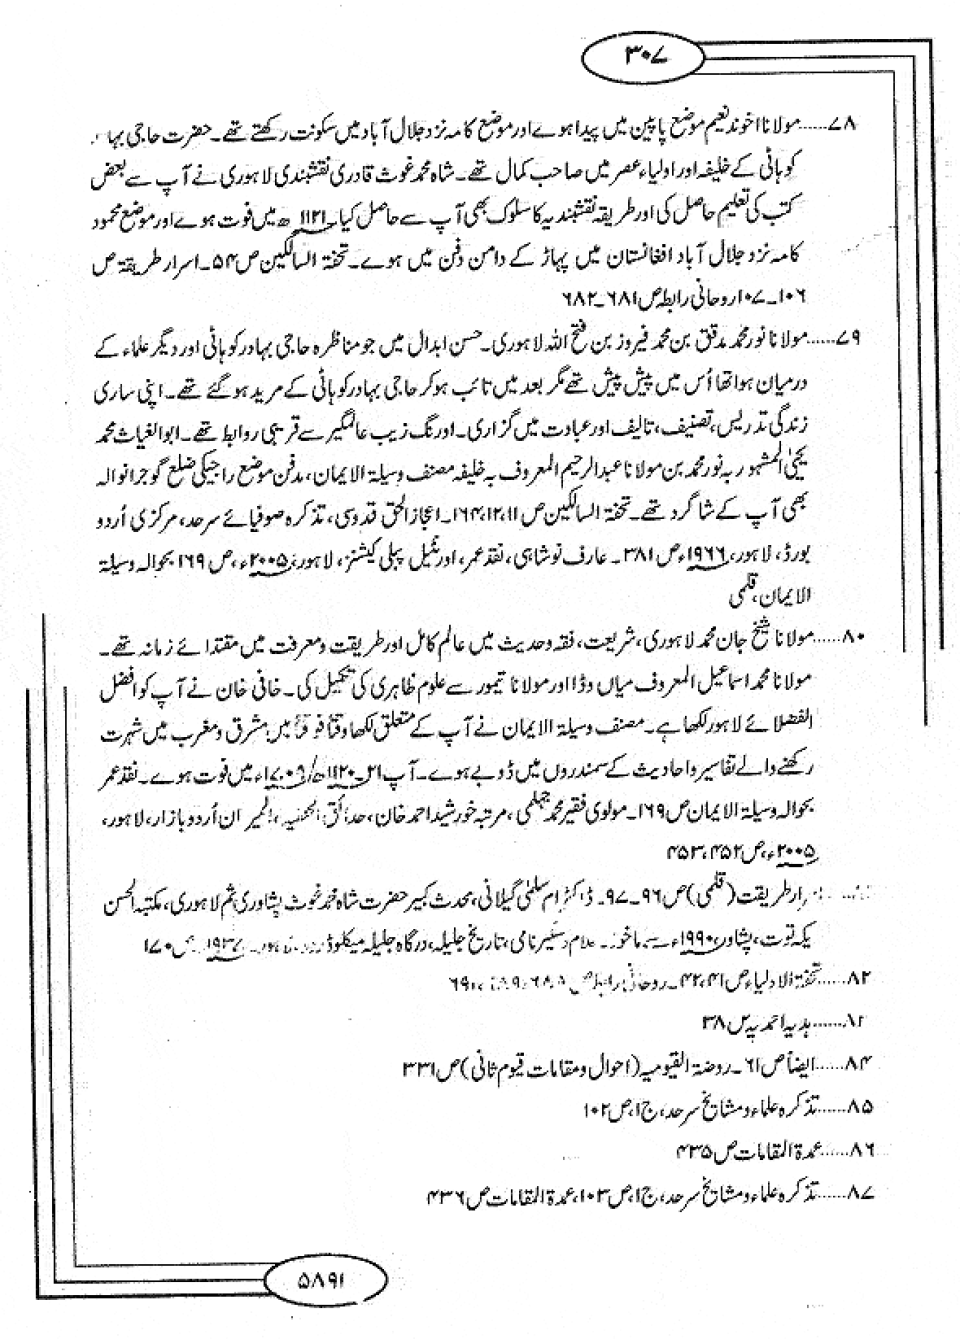 ۳۰۷
۷۸......مولانا اخوند نعیم موضع پاپین میں پیدا ہوے اور موضع کامہ نزد جلال آباد میں سکونت رکھتے تھے۔ حضرت حاجی بہا
کوہاٹی کے خلیفہ اور اولیاء عصر میں صاحب کمال تھے۔ شاہ محمد غوث قادری نقشبندی لاہوری نے آپ سے بعض
کتب کی تعلیم حاصل کی اور طریقہ نقشبندیہ کا سلوک بھی آپ سے حاصل کیا۔ ۱۱۲۱ھ میں فوت ہوے اور موضع محمود
کامہ نزد جلال آباد افغانستان میں پہاڑ کے دامن دفن میں ہوے۔ تحفۃ السالکین ص۵۴۔ اسرار طریقۃ ص
۱۰۶۔۱۰۷ روحانی رابطہ ص۶۸۱۔۶۸۲
۷۹......مولانا نور محمد مدقق بن محمد فیروز بن فتح اللہ لاہوری۔ حسن ابدال میں جو مناظرہ حاجی بہادر کوہاٹی اور دیگر علماء کے
درمیان ہوا تھا اُس میں پیش پیش تھے مگر بعد میں تائب ہو کر حاجی بہادر کوہاٹی کے مرید ہو گئے تھے۔ اپنی ساری
زندگی تدریس، تصنیف، تالیف اور عبادت میں گزاری۔ اورنگ زیب عالمگیر سے قریبی روابط تھے۔ ابو الغیاث محمد
یحیٰ المشہور بہ نور محمد بن مولانا عبدالرحیم المعروف بہ خلیفہ مصنف وسیلۃ الایمان، مدفن موضع راجیکی ضلع گوجرانوالہ
بھی آپ کے شاگرد تھے۔ تحفۃ السالکین ص۱۱،۱۲،۱۶۴۔ اعجاز الحق قدوسی، تذکرہ صوفیائے سرحد، مرکزی اُردو
بورڈ، لاہور، ۱۹۶۶ء ص۳۸۱۔ عارف نوشاہی، نقد عمر، اورئنٹیل پبلی کیشنز، لاہور، ۲۰۰۵ء، ص۱۶۹ بحوالہ وسیلۃ
الایمان، قلمی
۸۰......مولانا شیخ جان محمد لاہوری، شریعت، فقہ و حدیث میں عالم کامل اور طریقت و معرفت میں مقتدائے زمانہ تھے۔
مولانا محمد اسماعیل المعروف میاں وڈا اور مولانا تیمور سے علوم ظاہری کی تکمیل کی۔ خافی خان نے آپ کو افضل
الفضلائے لاہور لکھا ہے۔ مصنف وسیلۃ الایمان نے آپ کے متعلق لکھا وقتاً فوقتاً میں مشرق و مغرب میں شہرت
رکھنے والے تفاسیر و احادیث کے سمندروں میں ڈوبے ہوے۔ آپ ۲۱۔۱۱۲۰ھ/۱۷۰۹ء میں فوت ہوے۔ نقد عمر
بحوالہ وسیلۃ الایمان ص۱۶۹۔ مولوی فقیر محمد جہلمی، مرتبہ خورشید احمد خان، حدائق الحنفیہ، المیزان اُردو بازار، لاہور،
۲۰۰۵ء، ص۴۵۲،۴۵۳
اسرار طریقت (قلمی) ص۹۶۔۹۷۔ ڈاکٹر ام سلمٰی گیلانی، محدث کبیر حضرت شاہ محمد غوث پشاوری ثم لاہوری، مکتبہ الحسن
یکہ توت، پشاور، ۱۹۹۰ء سے ماخوذ۔ غلام دستگیر نامی، تاریخ جلیلہ، درگاہ جلیلہ میکلوڈ روڈ لاہور۔ ۱۹۳۷ء ص۱۷۰
۸۲......تحفۃ الاولیاء ص۴۱،۴۲۔ روحانی رابطہ ص ۶۹۰
......ہدیہ احمدیہ ص۳۸
۸۴......ایضاً ص۶۱۔ روضۃ القیومیہ (احوال و مقامات قیوم ثانی) ص۳۳۱
۸۵......تذکرہ علماء و مشایخ سرحد، ج۱، ص۱۰۲
۸۶......عمدۃ المقامات ص۴۳۵
۸۷......تذکرہ علماء و مشایخ سرحد، ج۱، ص۱۰۳، عمدۃ المقامات ص۴۳۶
۵۸۹۱